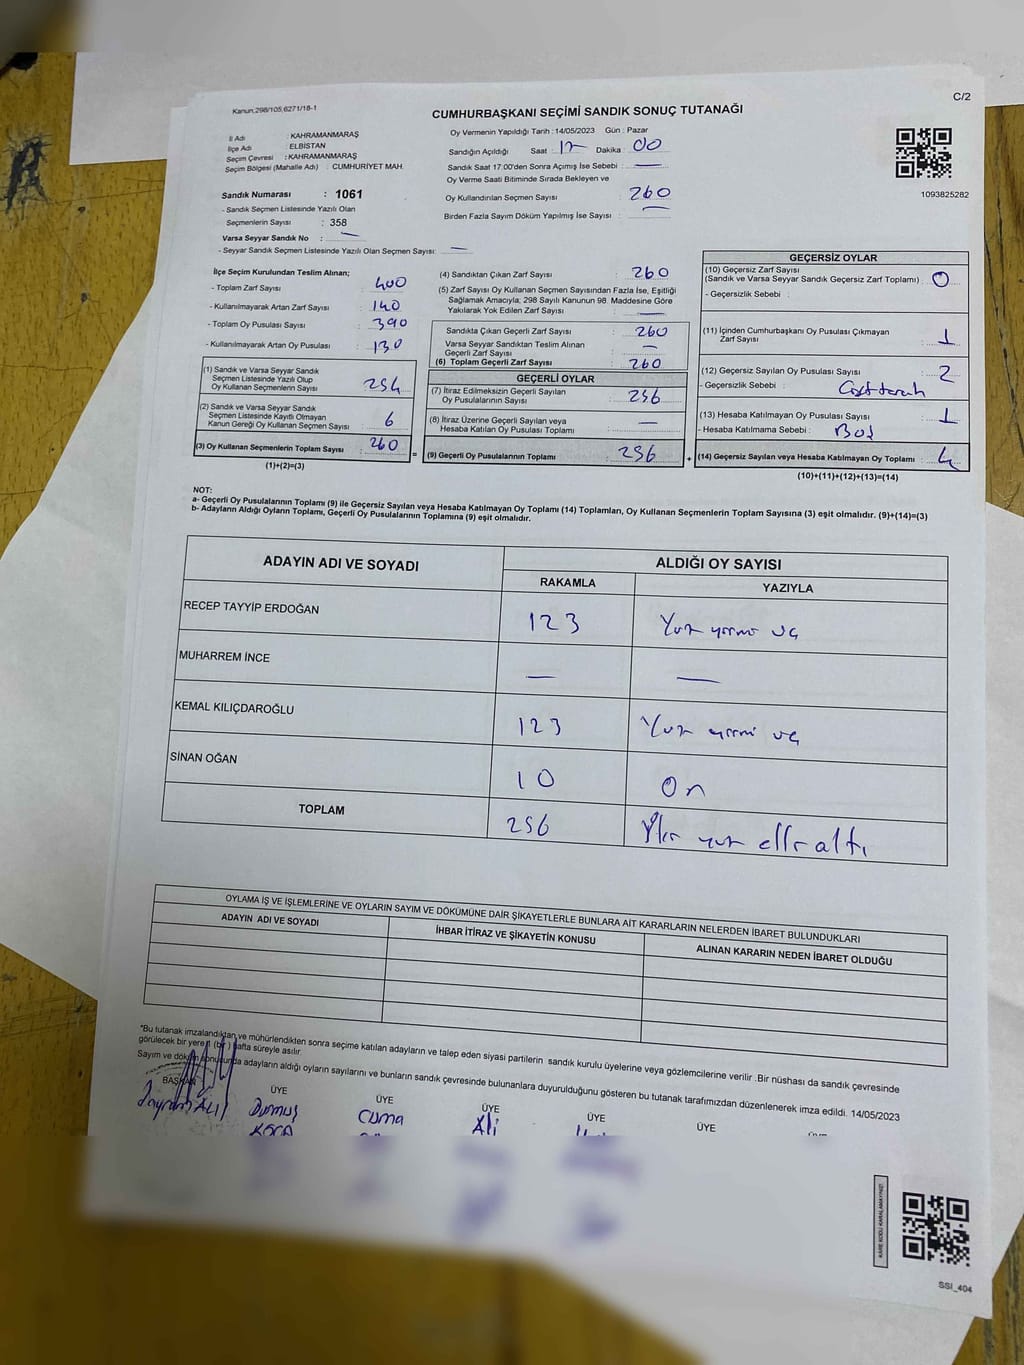 Kanun;298/105,6271/18-1
C/2
CUMHURBAŞKANI SEÇİMİ SANDIK SONUÇ TUTANAĞI
İl Adı : KAHRAMANMARAŞ
İlçe Adı : ELBİSTAN
Seçim Çevresi : KAHRAMANMARAŞ
Seçim Bölgesi (Mahalle Adı) : CUMHURİYET MAH.
Oy Vermenin Yapıldığı Tarih : 14/05/2023 Gün : Pazar
Sandığın Açıldığı Saat : 17 Dakika : 00
Sandık Saat 17:00'den Sonra Açımış İse Sebebi : —
Oy Verme Saati Bitiminde Sırada Bekleyen ve
Oy Kullandırılan Seçmen Sayısı : 260
Birden Fazla Sayım Döküm Yapılmış İse Sayısı : —
1093825282
Sandık Numarası : 1061
- Sandık Seçmen Listesinde Yazılı Olan
Seçmenlerin Sayısı : 358
Varsa Seyyar Sandık No : —
- Seyyar Sandık Seçmen Listesinde Yazılı Olan Seçmen Sayısı: —
İlçe Seçim Kurulundan Teslim Alınan;
- Toplam Zarf Sayısı : 400
- Kullanılmayarak Artan Zarf Sayısı : 140
- Toplam Oy Pusulası Sayısı : 390
- Kullanılmayarak Artan Oy Pusulası : 130
(1) Sandık ve Varsa Seyyar Sandık
Seçmen Listesinde Yazılı Olup
Oy Kullanan Seçmenlerin Sayısı : 254
(2) Sandık ve Varsa Seyyar Sandık
Seçmen Listesinde Kayıtlı Olmayan
Kanun Gereği Oy Kullanan Seçmen Sayısı : 6
(3) Oy Kullanan Seçmenlerin Toplam Sayısı : 260
(1)+(2)=(3)
(4) Sandıktan Çıkan Zarf Sayısı : 260
(5) Zarf Sayısı Oy Kullanan Seçmen Sayısından Fazla İse, Eşitliği
Sağlamak Amacıyla; 298 Sayılı Kanunun 98. Maddesine Göre
Yakılarak Yok Edilen Zarf Sayısı : —
Sandıkta Çıkan Geçerli Zarf Sayısı : 260
Varsa Seyyar Sandıktan Teslim Alınan
Geçerli Zarf Sayısı : —
(6) Toplam Geçerli Zarf Sayısı : 260
GEÇERLİ OYLAR
(7) İtiraz Edilmeksizin Geçerli Sayılan
Oy Pusulalarının Sayısı : 256
(8) İtiraz Üzerine Geçerli Sayılan veya
Hesaba Katılan Oy Pusulası Toplamı : —
= (9) Geçerli Oy Pusulalarının Toplamı : 256
GEÇERSİZ OYLAR
(10) Geçersiz Zarf Sayısı
(Sandık ve Varsa Seyyar Sandık Geçersiz Zarf Toplamı) : 0
- Geçersizlik Sebebi :
(11) İçinden Cumhurbaşkanı Oy Pusulası Çıkmayan
Zarf Sayısı : 1
(12) Geçersiz Sayılan Oy Pusulası Sayısı : 2
- Geçersizlik Sebebi : Çift tercih
(13) Hesaba Katılmayan Oy Pusulası Sayısı : 1
- Hesaba Katılmama Sebebi : Boş
+ (14) Geçersiz Sayılan veya Hesaba Katılmayan Oy Toplamı : 4
(10)+(11)+(12)+(13)=(14)
NOT:
a- Geçerli Oy Pusulalarının Toplamı (9) ile Geçersiz Sayılan veya Hesaba Katılmayan Oy Toplamı (14) Toplamları, Oy Kullanan Seçmenlerin Toplam Sayısına (3) eşit olmalıdır. (9)+(14)=(3)
b- Adayların Aldığı Oyların Toplamı, Geçerli Oy Pusulalarının Toplamına (9) eşit olmalıdır.
ADAYIN ADI VE SOYADI ALDIĞI OY SAYISI
RAKAMLA YAZIYLA
RECEP TAYYİP ERDOĞAN 123 Yüz yirmi üç
MUHARREM İNCE — —
KEMAL KILIÇDAROĞLU 123 Yüz yirmi üç
SİNAN OĞAN 10 On
TOPLAM 256 İki yüz elli altı
OYLAMA İŞ VE İŞLEMLERİNE VE OYLARIN SAYIM VE DÖKÜMÜNE DAİR ŞİKAYETLERLE BUNLARA AİT KARARLARIN NELERDEN İBARET BULUNDUKLARI
ADAYIN ADI VE SOYADI İHBAR İTİRAZ VE ŞİKAYETİN KONUSU ALINAN KARARIN NEDEN İBARET OLDUĞU
*Bu tutanak imzalandıktan ve mühürlendikten sonra seçime katılan adayların ve talep eden siyasi partilerin sandık kurulu üyelerine veya gözlemcilerine verilir .Bir nüshası da sandık çevresinde
görülecek bir yere 1 (bir) hafta süreyle asılır.
Sayım ve döküm sonucunda adayların aldığı oyların sayılarını ve bunların sandık çevresinde bulunanlara duyurulduğunu gösteren bu tutanak tarafımızdan düzenlenerek imza edildi. 14/05/2023
BAŞKAN ÜYE ÜYE ÜYE ÜYE ÜYE
Bayram ALI Durmuş Cuma Ali
KOCA
KARE KODU KARALAMAYINIZ!
SSI_404